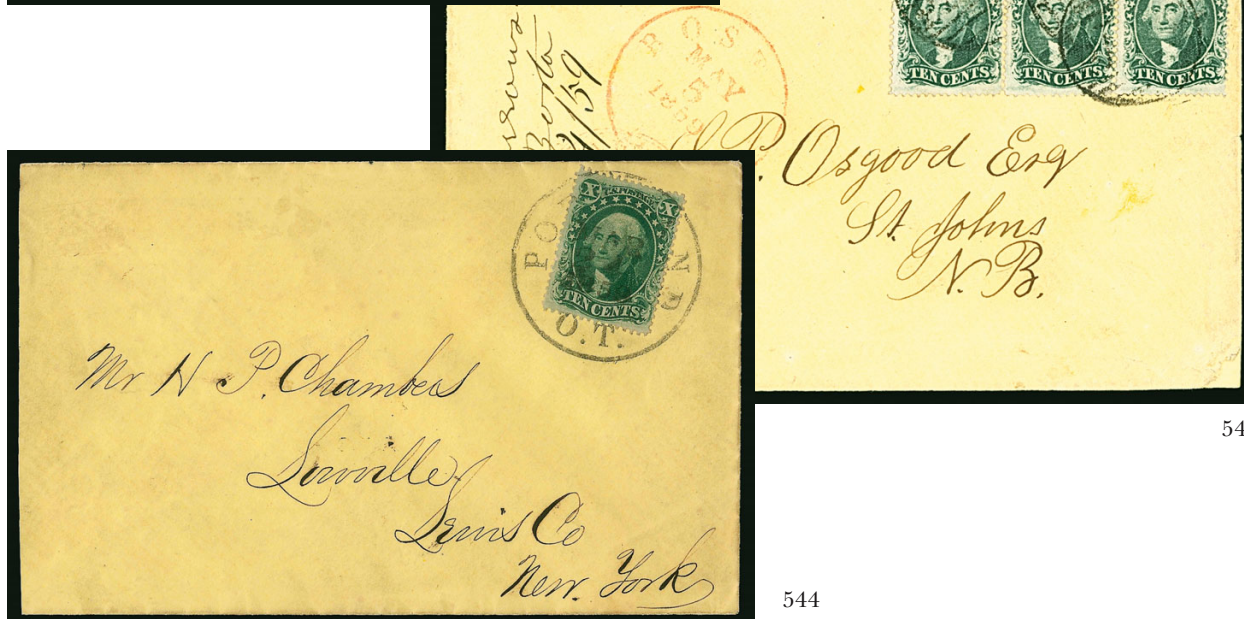 BOST
MAY
5
1859
TEN CENTS
TEN CENTS
TEN CENTS
Boston
/59
P. Osgood Esq
St. Johns
N. B.
54
X U.S. POSTAGE X
TEN CENTS
PO N D
O.T.
Mr N P. Chambers
Lowville
Lewis Co
New. York
544